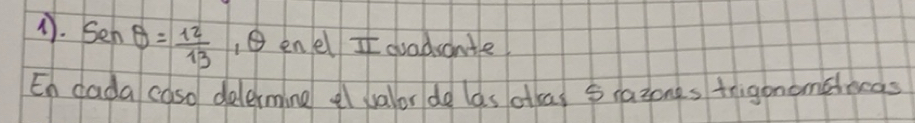 1). Sen θ = 12/13, θ en el II cuadrante.
En cada caso determine el valor de las otras 5 razones trigonométricas